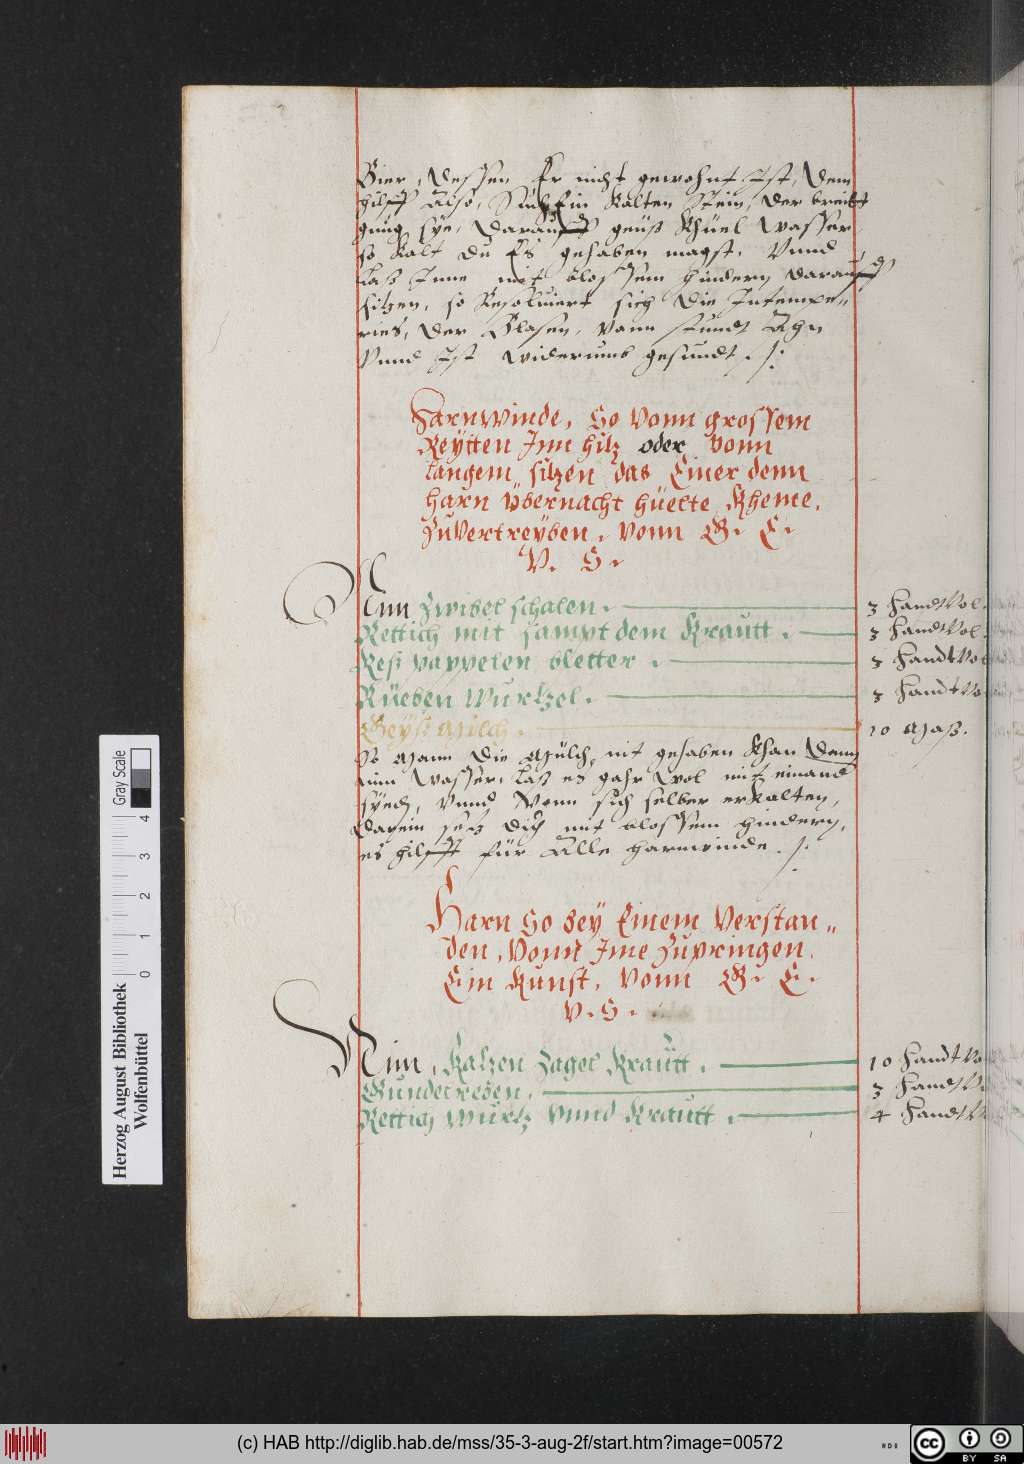 Bier, dessen Er nicht gewohnt Ist, dem
hilfft Also, Such Ein kalten Stein, der breitt
gnug sye, darauff geüß khüel wasser,
so kalt du Es gehaben magst, Vnnd
Laß Inne mit blossem hindern darauff
sitzen, so Resoluiert sich die Intempe„
ries, der Blasen, vonn stundt An
Vnnd Ist widerumb gesundt ./.
Harnwinde, So vonn grossem
Reytten Inn hitz oder vonn
langem sitzen das Einer denn
harn übernacht hüelte kheme,
Zuvertreyben, vonn G. E.
V. S.
Nim Zwibel schalen. 3 Handt Vol.
Rettich mit sampt dem Krautt. 3 Handt Vol.
Keß pappelen bletter. 3 Handt Vol
Rüeben Wurtzel. 3 Handt Vo
Geyß Milch. 10 Maß.
So Mann die Mülch nit gehaben khan dann
nim wasser, Laß es gahr wol mit einand
syedn, Vnnd wenn sich selber erkalten,
darein setz dich mit blossem hindern,
es hilfft für Alle harnwinde ./.
Harn So bey Einem Verstan„
den, Vonn Ime Zupringen,
Ein Kunst, vonn G. E.
V. S.
Nim, Katzen Zagel Krautt. 10 Handt Vo
Gundelreben. 3 Handt V
Rettich Wurtz Vnnd Krautt. 4 Handt V
Herzog August Bibliothek
Wolfenbüttel
0 1 2 3 4
Gray Scale
(c) HAB http://diglib.hab.de/mss/35-3-aug-2f/start.htm?image=00572
cc BY SA